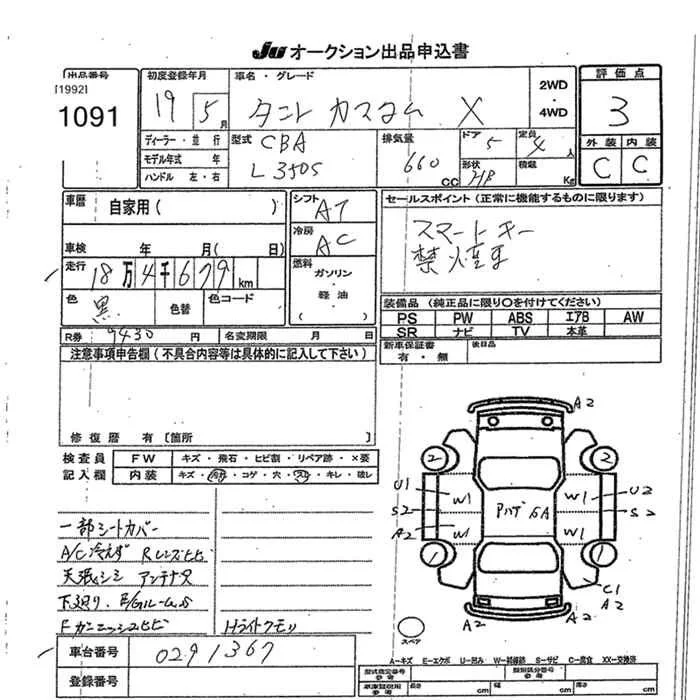 JU オークション出品申込書
出品番号
[1992]
1091
初度登録年月
19 5月
車名・グレード
タント カスタム X
2WD
・
4WD
評価点
3
外装 内装
C C
ディーラー・並行
モデル年式 年
ハンドル 左・右
型式 CBA
L350S
排気量
660 cc
ドア 5
定員 4人
形状 H/B
積載 Kg
車歴 自家用 ( )
車検 年 月( 日)
走行 18万4千679km
色 黒
色替
色コード
R券 9430円
名変期限 月 日
シフト AT
冷房 AC
燃料
ガソリン
・
軽油
( )
セールスポイント (正常に機能するものに限ります)
スマートキー
禁煙車
装備品 (純正品に限り○を付けてください)
PS PW ABS エアB AW
SR ナビ TV 本革
新車保証書
有・無
後日品
注意事項申告欄 (不具合内容等は具体的に記入して下さい)
修復歴 有 [箇所
検査員
記入欄
FW キズ・飛石・ヒビ割・リペア跡・×要
内装 キズ・汚れ・コゲ・穴・スレ・キレ・破レ
一部シートカバー
A/C冷えず Rレンズヒビ
天張シミ アンテナ欠
下廻り、E/GルームS
Fガーニッシュヒビ
Hライトクモリ
車台番号 0291367
登録番号
A2
2 2
U1 W1 W1 U2
S2 Pハゲ GA S2
A2 W1 W1
1 1
C1
A2
A2 A2
スペア
A―キズ E―エクボ U―凹み W―補修跡 S―サビ C―腐食 XX―交換済
型式指定番号
参考
類別区分番号
参考
車庫証明用
参考
長さ cm
幅 cm
高さ cm